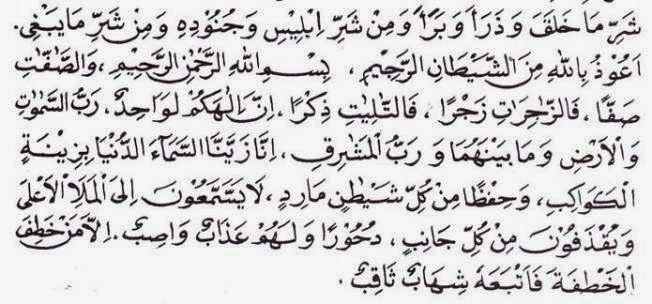 شَرِّ مَا خَلَقَ وَذَرَأَ وَبَرَأَ وَمِنْ شَرِّ اِبْلِيْسَ وَجُنُوْدِهِ وَمِنْ شَرِّ مَا يَبْغِى.
اَعُوْذُ بِاللهِ مِنَ الشَّيْطَانِ الرَّجِيْمِ، بِسْمِ اللهِ الرَّحْمٰنِ الرَّحِيْمِ، وَالصّٰفّٰتِ
صَفًّا، فَالزّٰجِرَاتِ زَجْرًا، فَالتّٰلِيٰتِ ذِكْرًا، اِنَّ اِلٰهَكُمْ لَوَاحِدٌ، رَبُّ السَّمٰوٰتِ
وَالْاَرْضِ وَمَا بَيْنَهُمَا وَرَبُّ الْمَشَرِقِ، اِنَّا زَيَّنَّا السَّمَآءَ الدُّنْيَا بِزِيْنَةٍ
الْكَوَاكِبِ، وَحِفْظًا مِنْ كُلِّ شَيْطٰنٍ مَارِدٍ، لَا يَسَّمَّعُوْنَ اِلَى الْمَلَاِ الْاَعْلَى
وَيُقْذَفُوْنَ مِنْ كُلِّ جَانِبٍ، دُحُوْرًا وَلَهُمْ عَذَابٌ وَاصِبٌ. اِلَّا مَنْ خَطِفَ
الْخَطْفَةَ فَاَتْبَعَهُ شِهَابٌ ثَاقِبٌ.